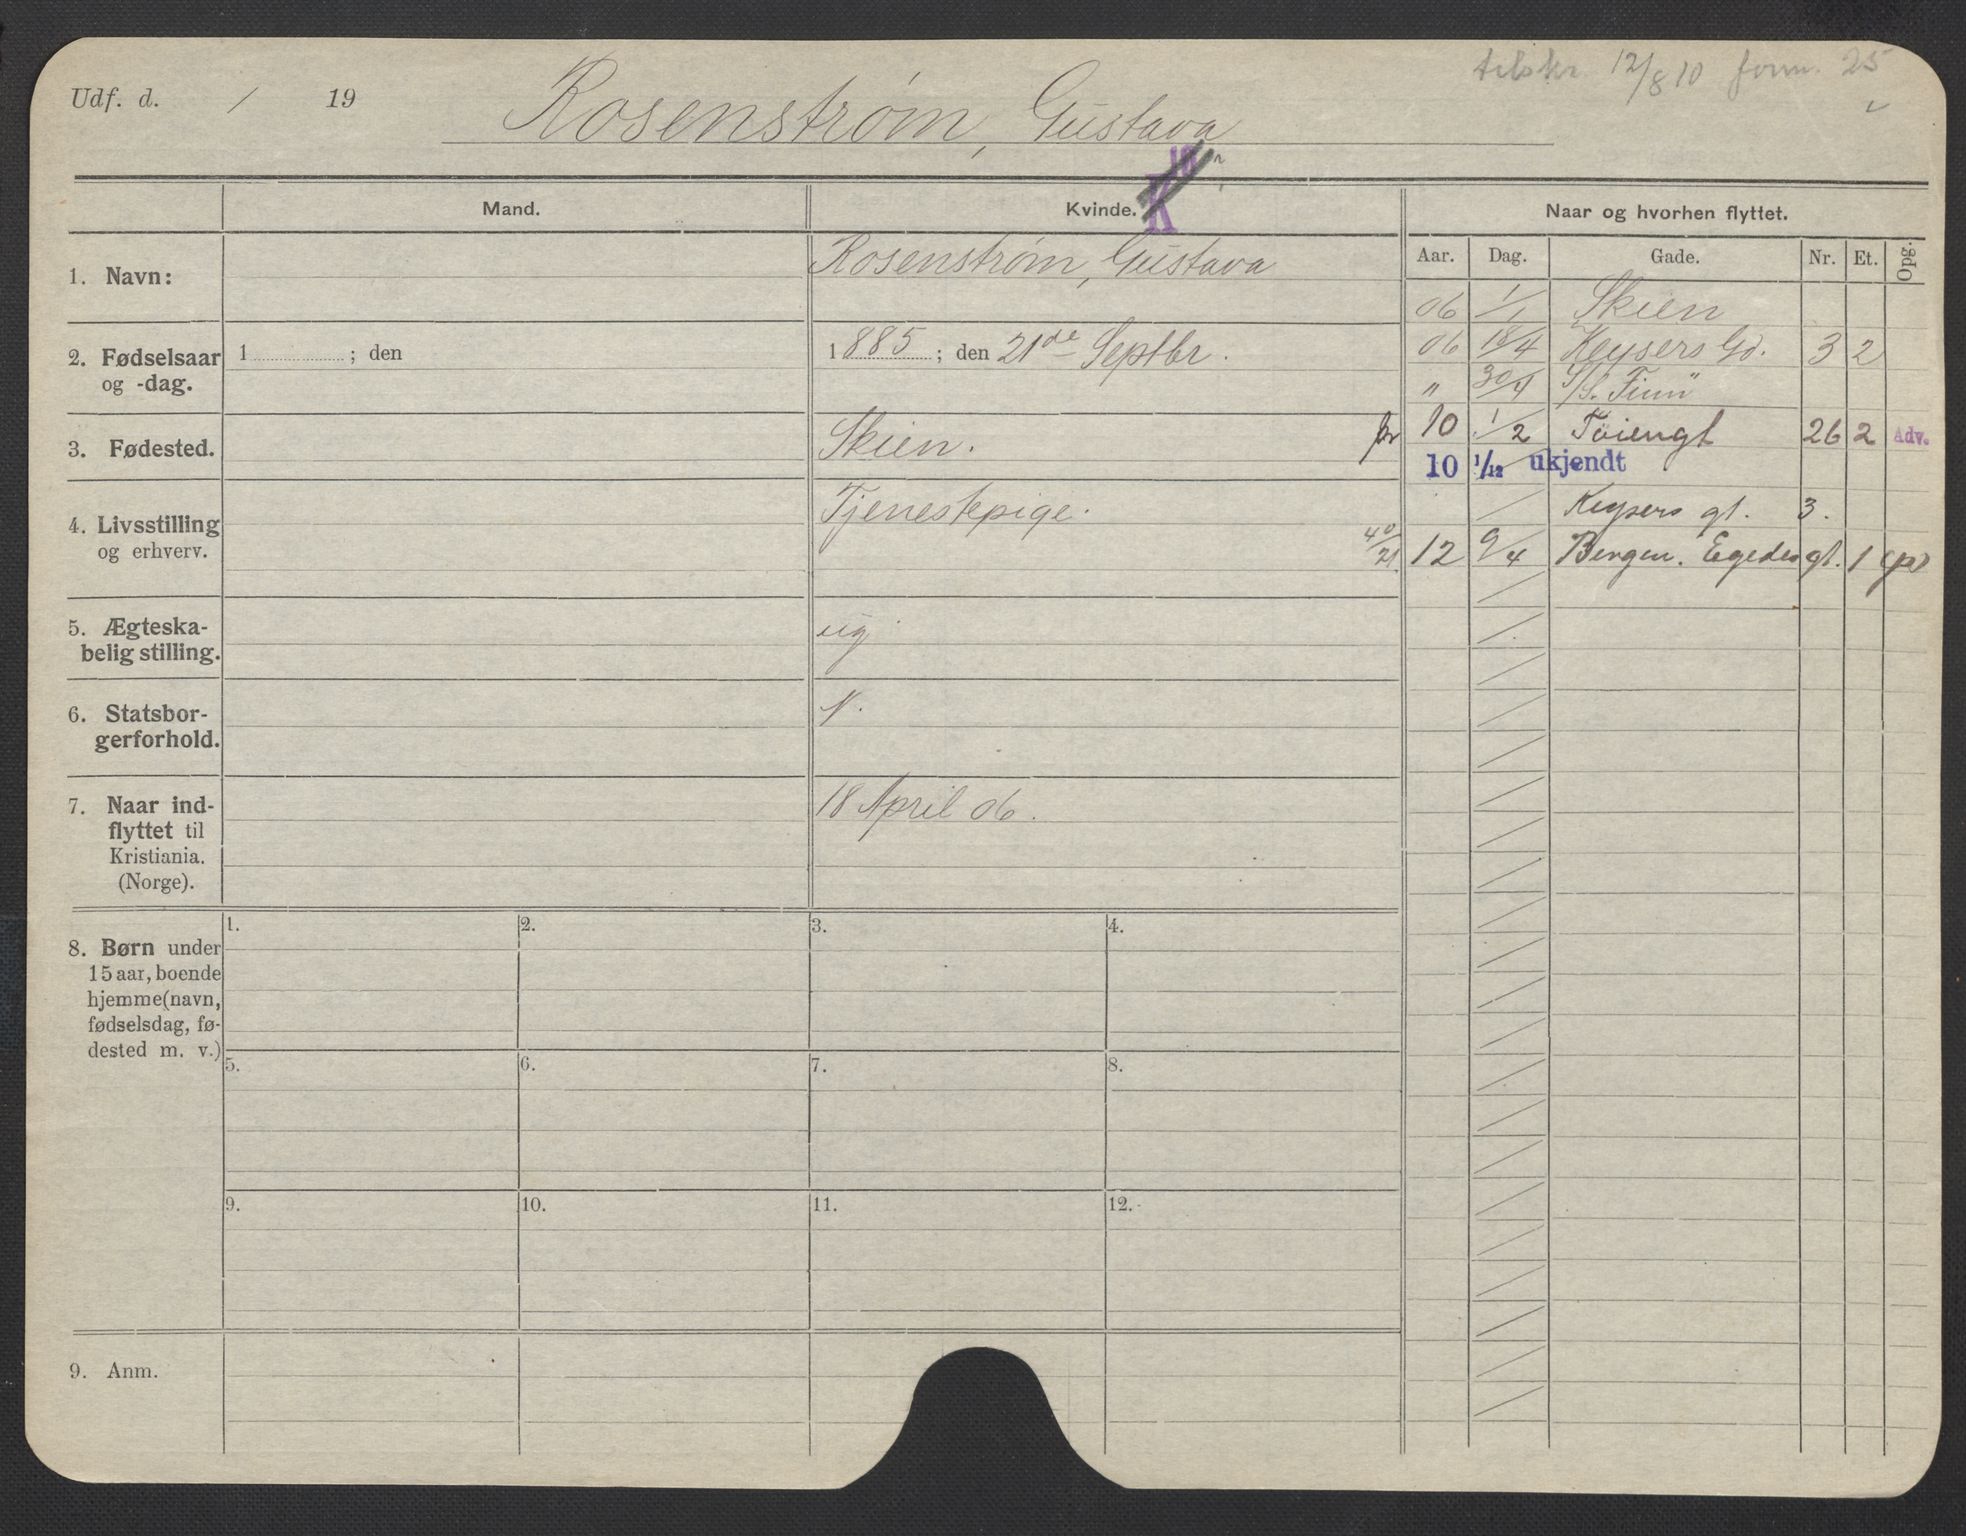 tilskr. 12/8 10 form. 25
Udf. d. / 19
Rosenstrøm, Gustava
Mand.
Kvinde.
K
Naar og hvorhen flyttet.
Aar. Dag. Gade. Nr. Et. Opg.
1. Navn:
Rosenstrøm, Gustava
2. Fødselsaar
og -dag.
1 ; den
1885 ; den 21de Septbr.
3. Fødested.
Skien.
4. Livsstilling
og erhverv.
Tjenestepige.
5. Ægteska-
belig stilling.
ug
6. Statsbor-
gerforhold.
N.
7. Naar ind-
flyttet til
Kristiania.
(Norge).
18 April 06.
06 1/1 Skien
06 18/4 Keysers Gd. 3 2
" 30/4 S/S. "Finn"
10 1/2 Tøiengt 26 2 Adv.
10 1/12 ukjendt
/ Keysers gt. 3.
40/21 12 9/4 Bergen. Egedesgt. 1 (p)
8. Børn under
15 aar, boende
hjemme (navn,
fødselsdag, fø-
dested m. v.)
1. 2. 3. 4.
5. 6. 7. 8.
9. 10. 11. 12.
9. Anm.